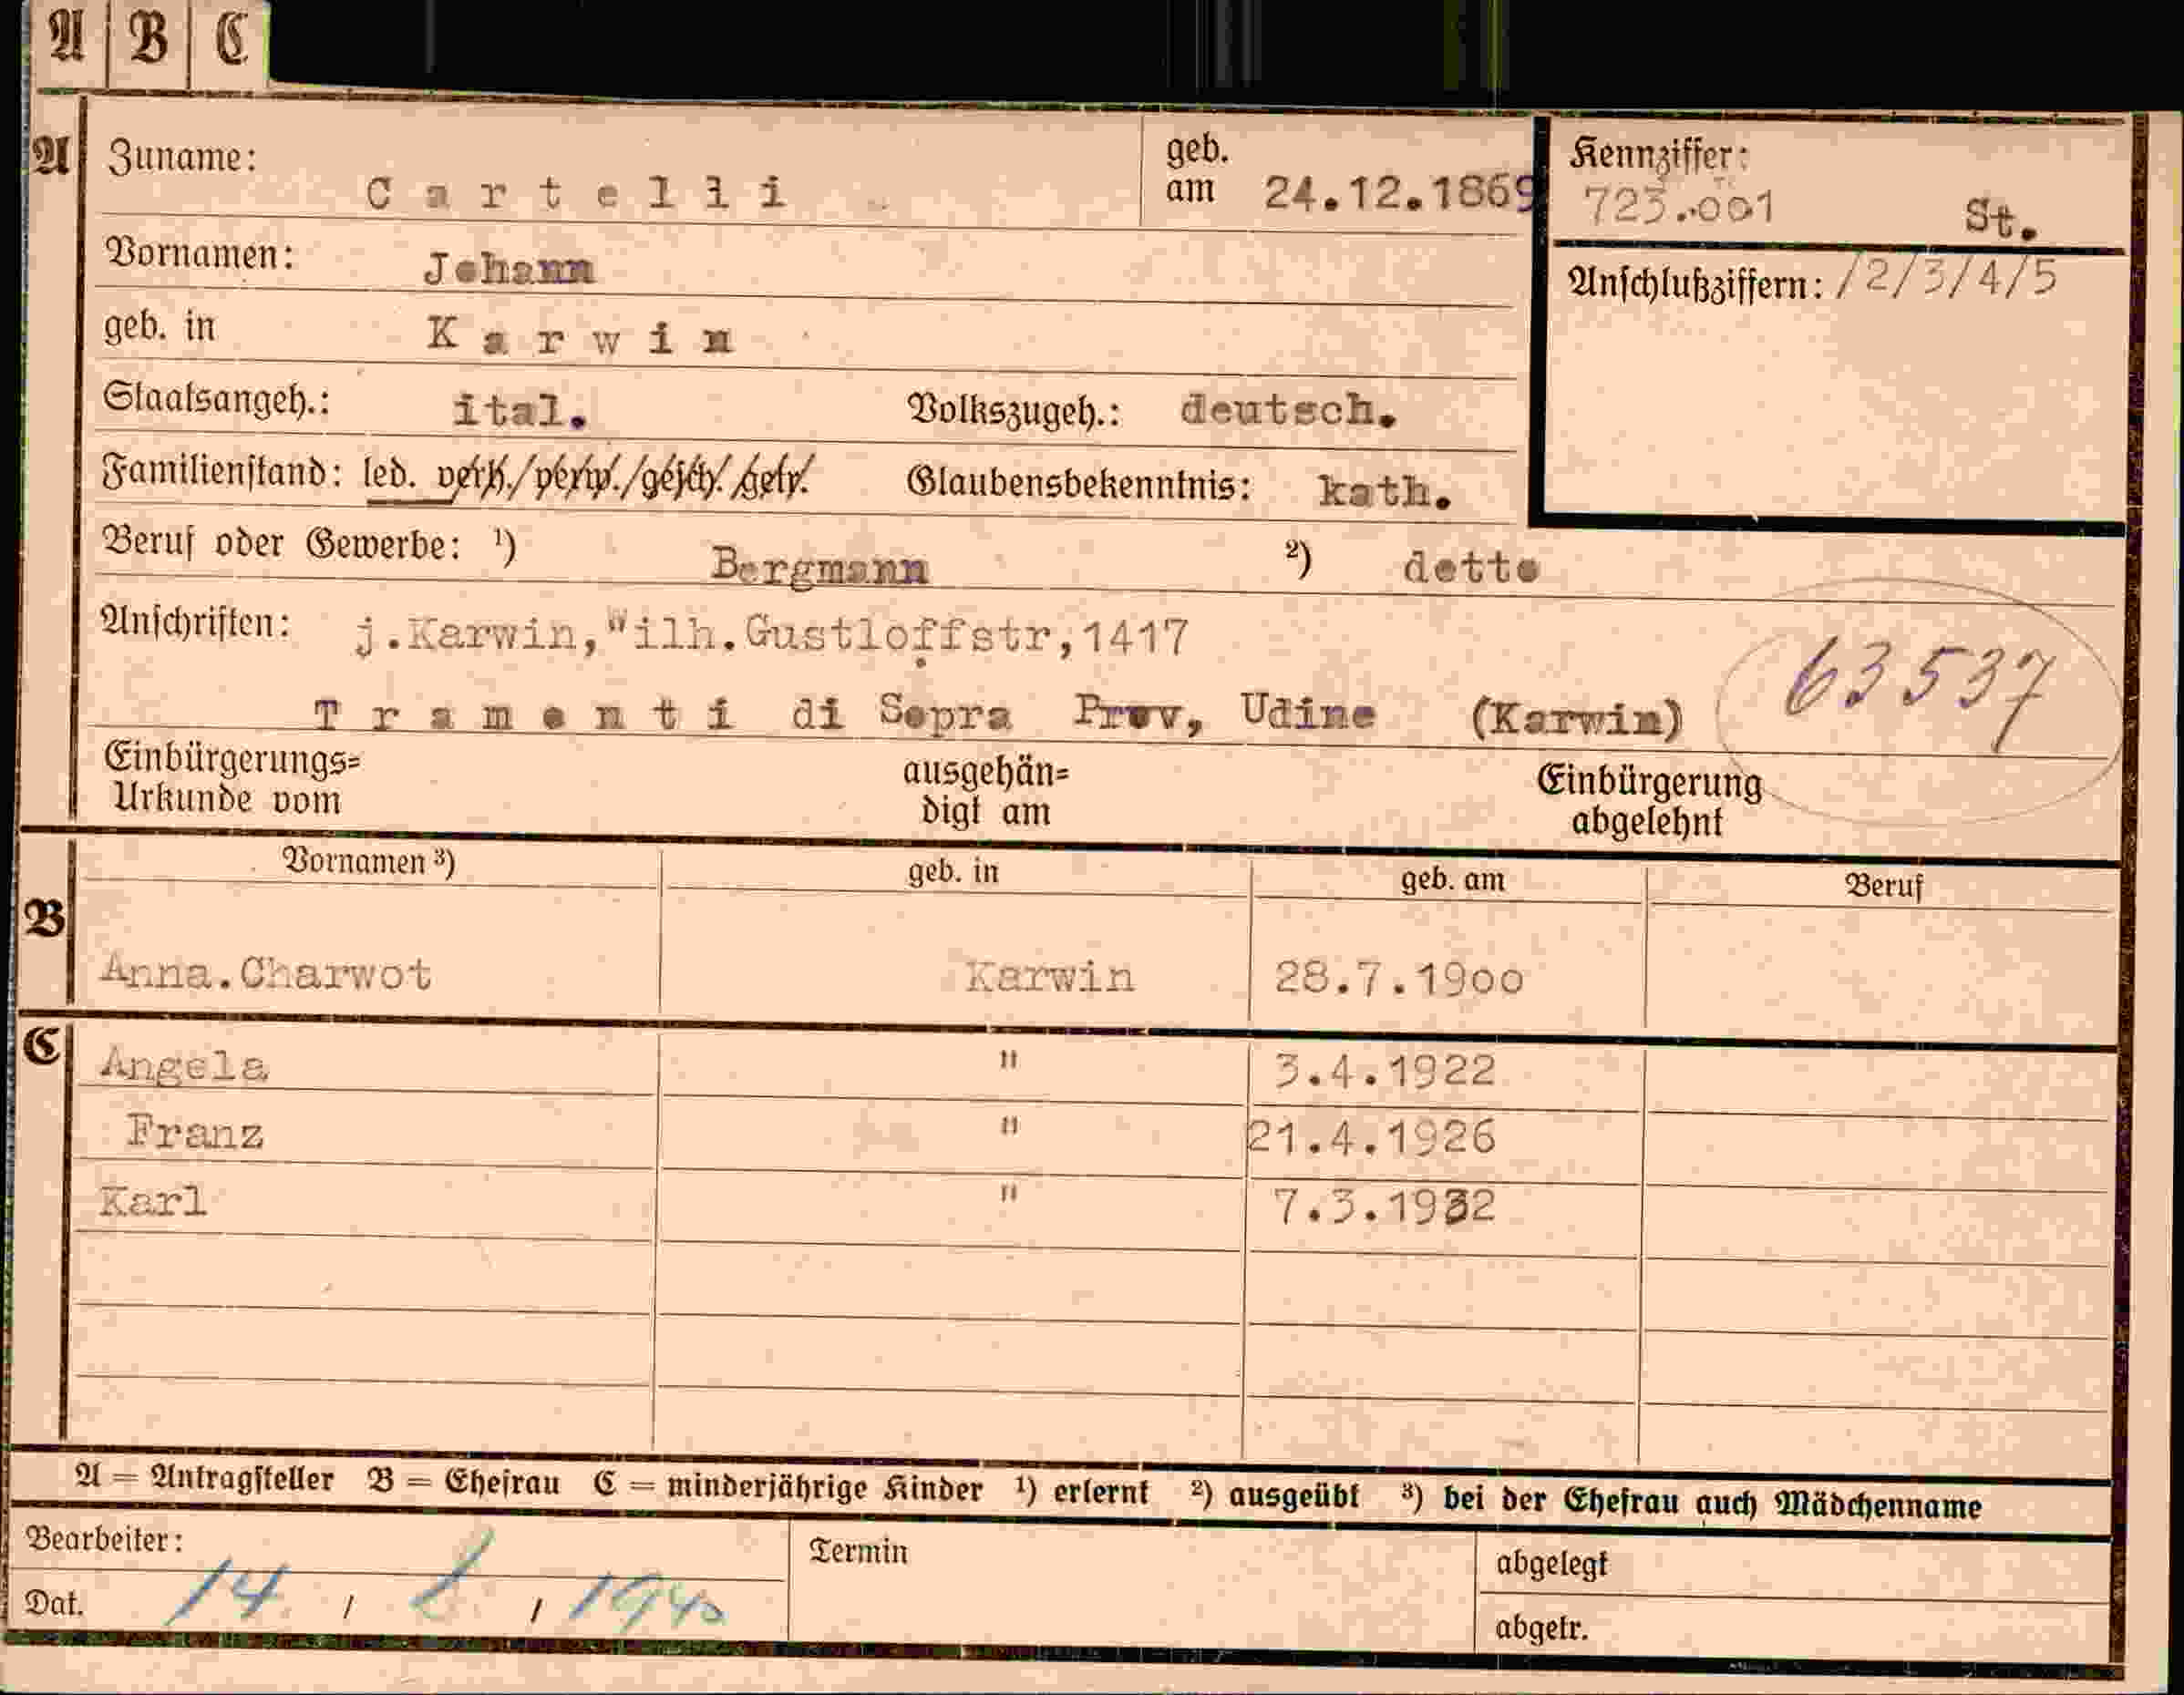 A B C
A Zuname: Cartelli geb. am 24.12.1869 Kennziffer: 723.001 St.
Vornamen: Johann Anschlußziffern: /2/3/4/5
geb. in Karwin
Staatsangeh.: ital. Volkszugeh.: deutsch.
Familienstand: led. verh./verw./gesch./getr. Glaubensbekenntnis: kath.
Beruf oder Gewerbe: ¹) Bergmann ²) detto
Anschriften: j.Karwin,Wilh.Gustloffstr,1417
Tramonti di Sopra Prov, Udine (Karwin) 63537
Einbürgerungs= Urkunde vom ausgehän= digt am Einbürgerung abgelehnt
Vornamen ³) geb. in geb. am Beruf
B
Anna.Charwot Karwin 28.7.1900
C Angela " 3.4.1922
Franz " 21.4.1926
Karl " 7.3.1932
A = Antragsteller B = Ehefrau C = minderjährige Kinder ¹) erlernt ²) ausgeübt ³) bei der Ehefrau auch Mädchenname
Bearbeiter: Termin abgelegt
Dat. 14 / / 1940 abgetr.